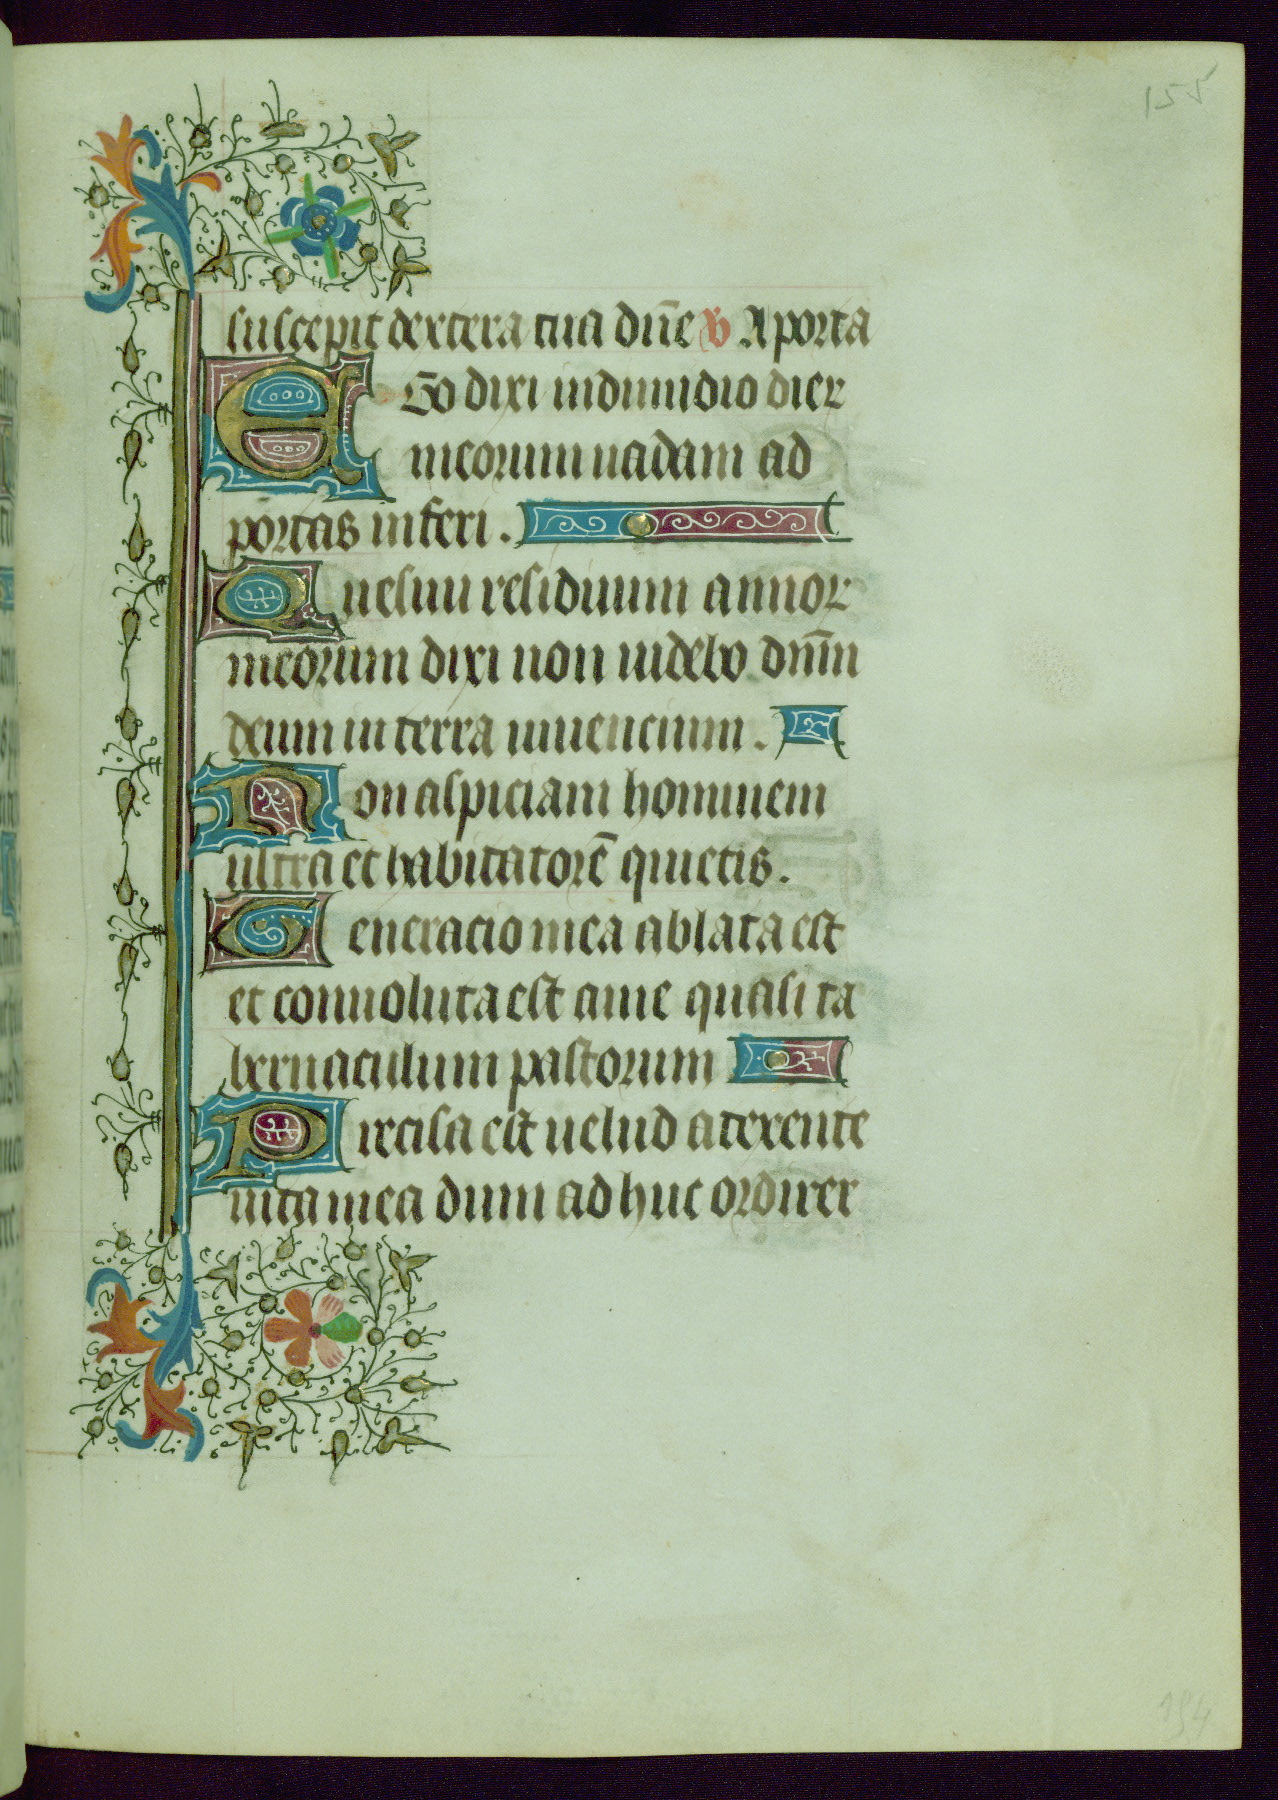 155
suscepit dextera tua dn̄e v A porta
EGo dixi in dimidio dier
meorum uadam ad
portas inferi.
Quesiui residuum annor
meorum dixi non uidebo dnm̄
deum in terra uiuencium.
Non aspiciam hominem
ultra et habitatorē quietis.
Generacio mea ablata est
et conuoluta est a me quasi ta
bernaculum pastorum
Precisa est uelud a texente
uita mea dum ad huc ordirer
154